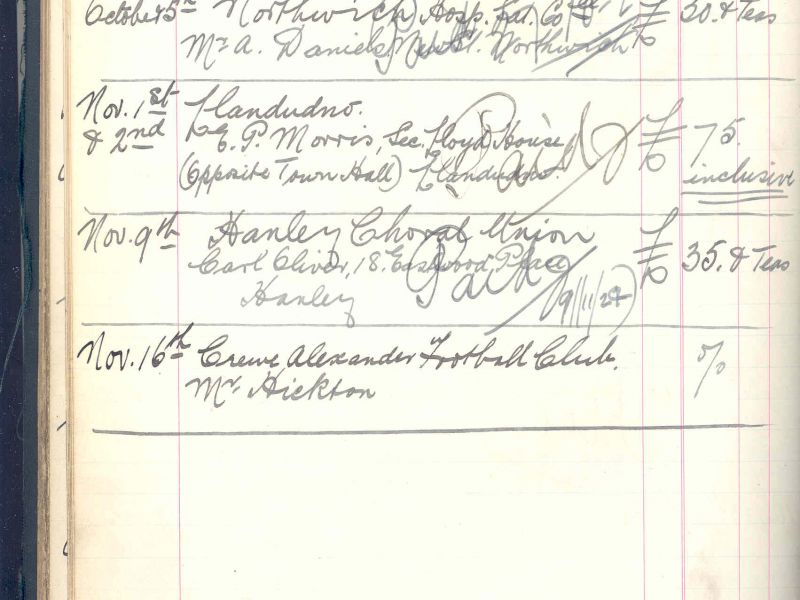 October 5th Northwich Hosp. Sat. Co £ 30. & Teas
Mr A. Daniels, New St. Northwich
Nov. 1st Llandudno.
& 2nd E. P. Morris, Sec. Lloyd House £ 75.
(Opposite Town Hall) Llandudno. inclusive
Paid
Nov. 9th Hanley Choral Union
Carl Oliver, 18. Eastwood Place £ 35. & Teas
Hanley
Paid 9/11/24
Nov. 16th Crewe Alexander Football Club. %
Mr. Hickton